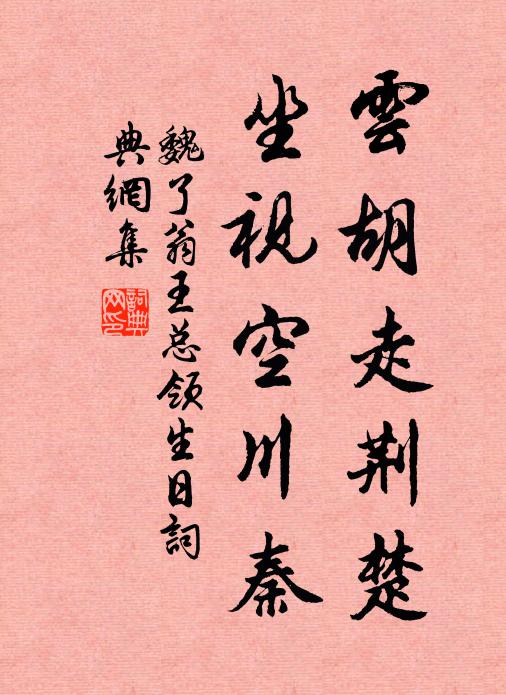 雲胡走荆楚
坐視空川秦
魏了翁王总領生日詞
典網集
詞典网印